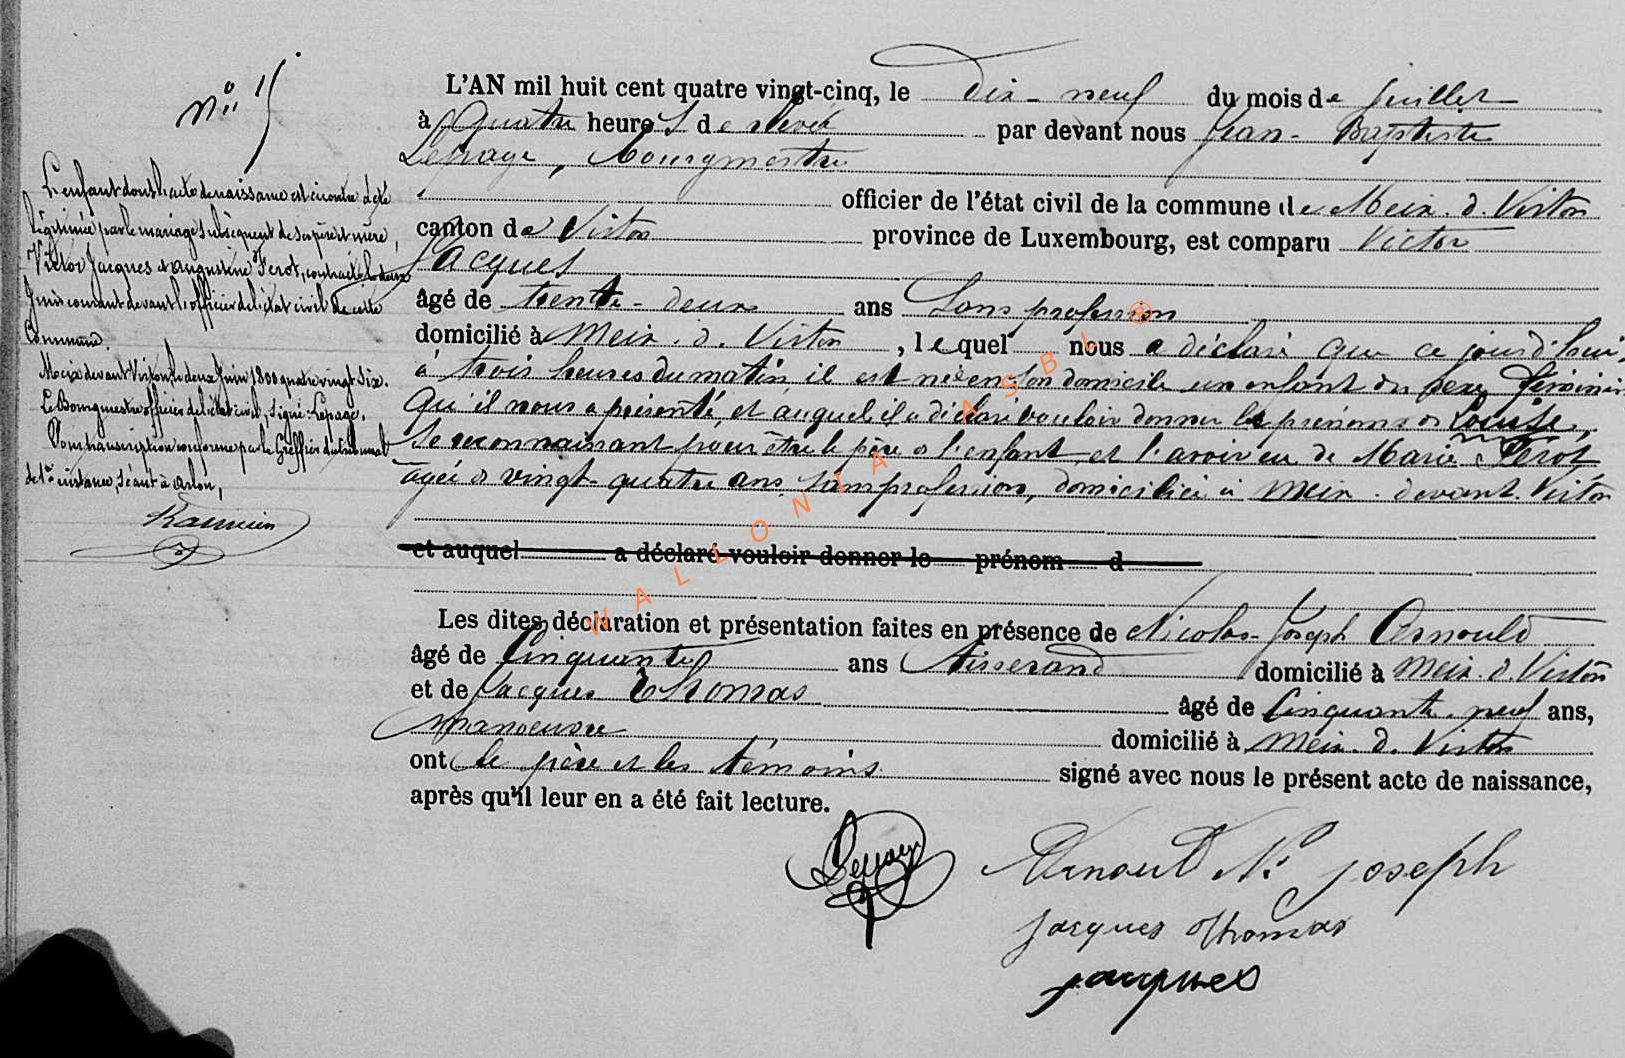 n° 15
L'enfant dont l'acte de naissance est ci-contre a été
légitimée par le mariage subséquent de ses père et mère,
Victor Jacques et Augustine Perot, contracté le deux
Juin courant devant l'officier de l'état civil de cette
Commune.
Meix devant Virton, le deux Juin 1800 quatre vingt Six.
Le Bourgmestre officier de l'état civil, signé: Lepage.
Pour transcription conforme par le Greffier du tribunal
de 1re instance, séant à Arlon,
L'AN mil huit cent quatre vingt-cinq, le Dix-neuf du mois de Juillet
à Quatre heures de relevée par devant nous Jean-Baptiste
Lepage, Bourgmestre
officier de l'état civil de la commune de Meix.d.Virton
canton de Virton province de Luxembourg, est comparu Victor
Jacques
âgé de trente-deux ans Sans profession
domicilié à Meix.d.Virton, lequel nous a déclaré que ce jourd'hui,
à trois heures du matin il est né en son domicile un enfant du sexe féminin
qu'il nous a présenté, et auquel il a déclaré vouloir donner les prénoms de Louise,
Se reconnaissant pour être le père de l'enfant et l'avoir eu de Marie Perot,
âgée de vingt-quatre ans, sans profession, domiciliée à Meix-devant-Virton
et auquel a déclaré vouloir donner le prénom d
Les dites déclaration et présentation faites en présence de Nicolas-Joseph Arnould
âgé de Cinquante ans Tisserand domicilié à Meix.d.Virton
et de Jacques Thomas âgé de Cinquante-neuf ans,
manoeuvre domicilié à Meix.d.Virton
ont le père et les témoins signé avec nous le présent acte de naissance,
après qu'il leur en a été fait lecture.
Lepage
Arnould N. Joseph
Jacques Thomas
Jacques
WALLONIA ASBL ®